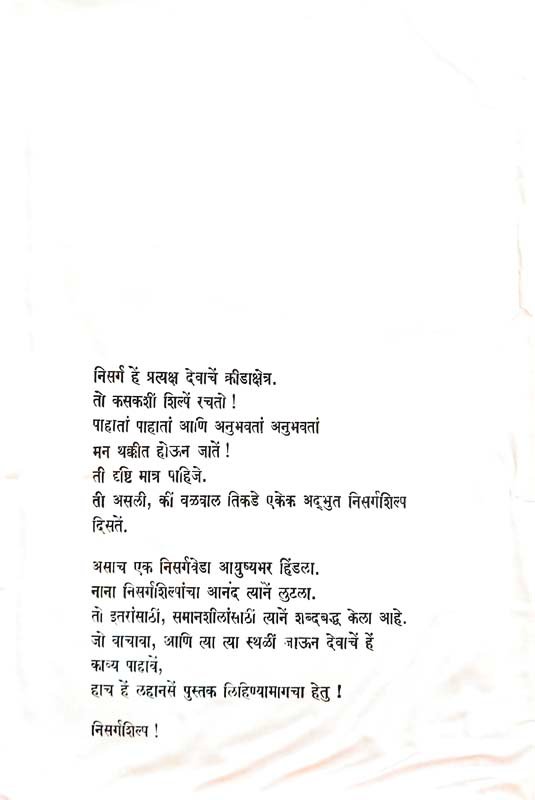 निसर्ग हें प्रत्यक्ष देवाचें क्रीडाक्षेत्र.
तो कसकशीं शिल्पें रचतो !
पाहातां पाहातां आणि अनुभवतां अनुभवतां
मन थक्कीत होऊन जातें !
ती दृष्टि मात्र पाहिजे.
ती असली, कीं वळवाल तिकडे एकेक अद्‌भुत निसर्गशिल्प
दिसतें.
असाच एक निसर्गवेडा आयुष्यभर हिंडला.
नाना निसर्गशिल्पांचा आनंद त्यानें लुटला.
तो इतरांसाठी, समानशीलांसाठीं त्यानें शब्दबद्ध केला आहे.
जो वाचावा, आणि त्या त्या स्थळीं जाऊन देवाचें हें
काव्य पाहावें,
हाच हें लहानसें पुस्तक लिहिण्यामागचा हेतु !
निसर्गशिल्प !